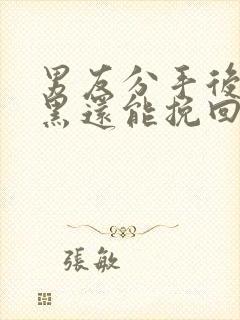 男友分手後
黑還能挽回
張敏